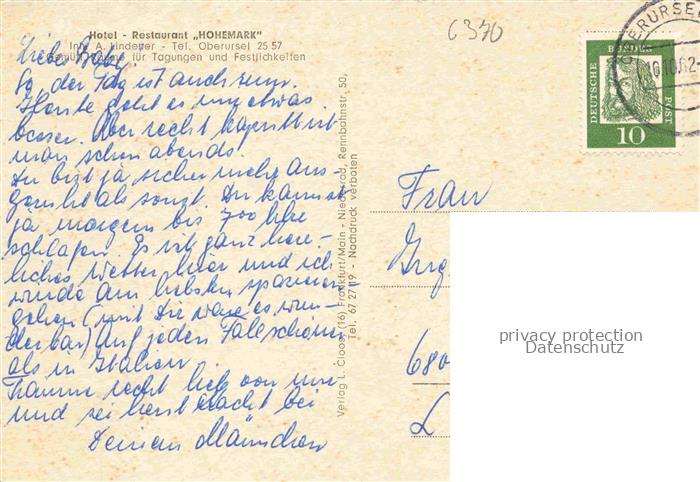 Hotel - Restaurant „HOHEMARK"
Inh. A. Lindener - Tel. Oberursel 25 57
räume für Tagungen und Festlichkeiten
6370
OBERURSEL
10.10.62
DEUTSCHE
BUNDES
POST
10
Liebe Baby!
So der Tag ist auch rum.
Heute geht es mir etwas
besser. Aber recht kaputt ist
man schon abends.
Du bist ja sicher mehr aus-
geruht als sonst. Du kannst
ja morgens bis 7oo Uhr
schlafen. Es ist ganz herr-
liches Wetter hier und ich
würde am liebsten spazieren
gehen (mit Dir wäre es wun-
derbar) Auf jeden Fall schöner
als in Italien.
Träume recht lieb von mir
und sei heute Nacht bei
Deinem Männchen
Verlag L. Closs, (16) Frankfurt/Main - Niederrad, Rennbahnstr. 50,
Tel. 67 27 19 - Nachdruck verboten
Frau
Ing
680
L
privacy protection
Datenschutz